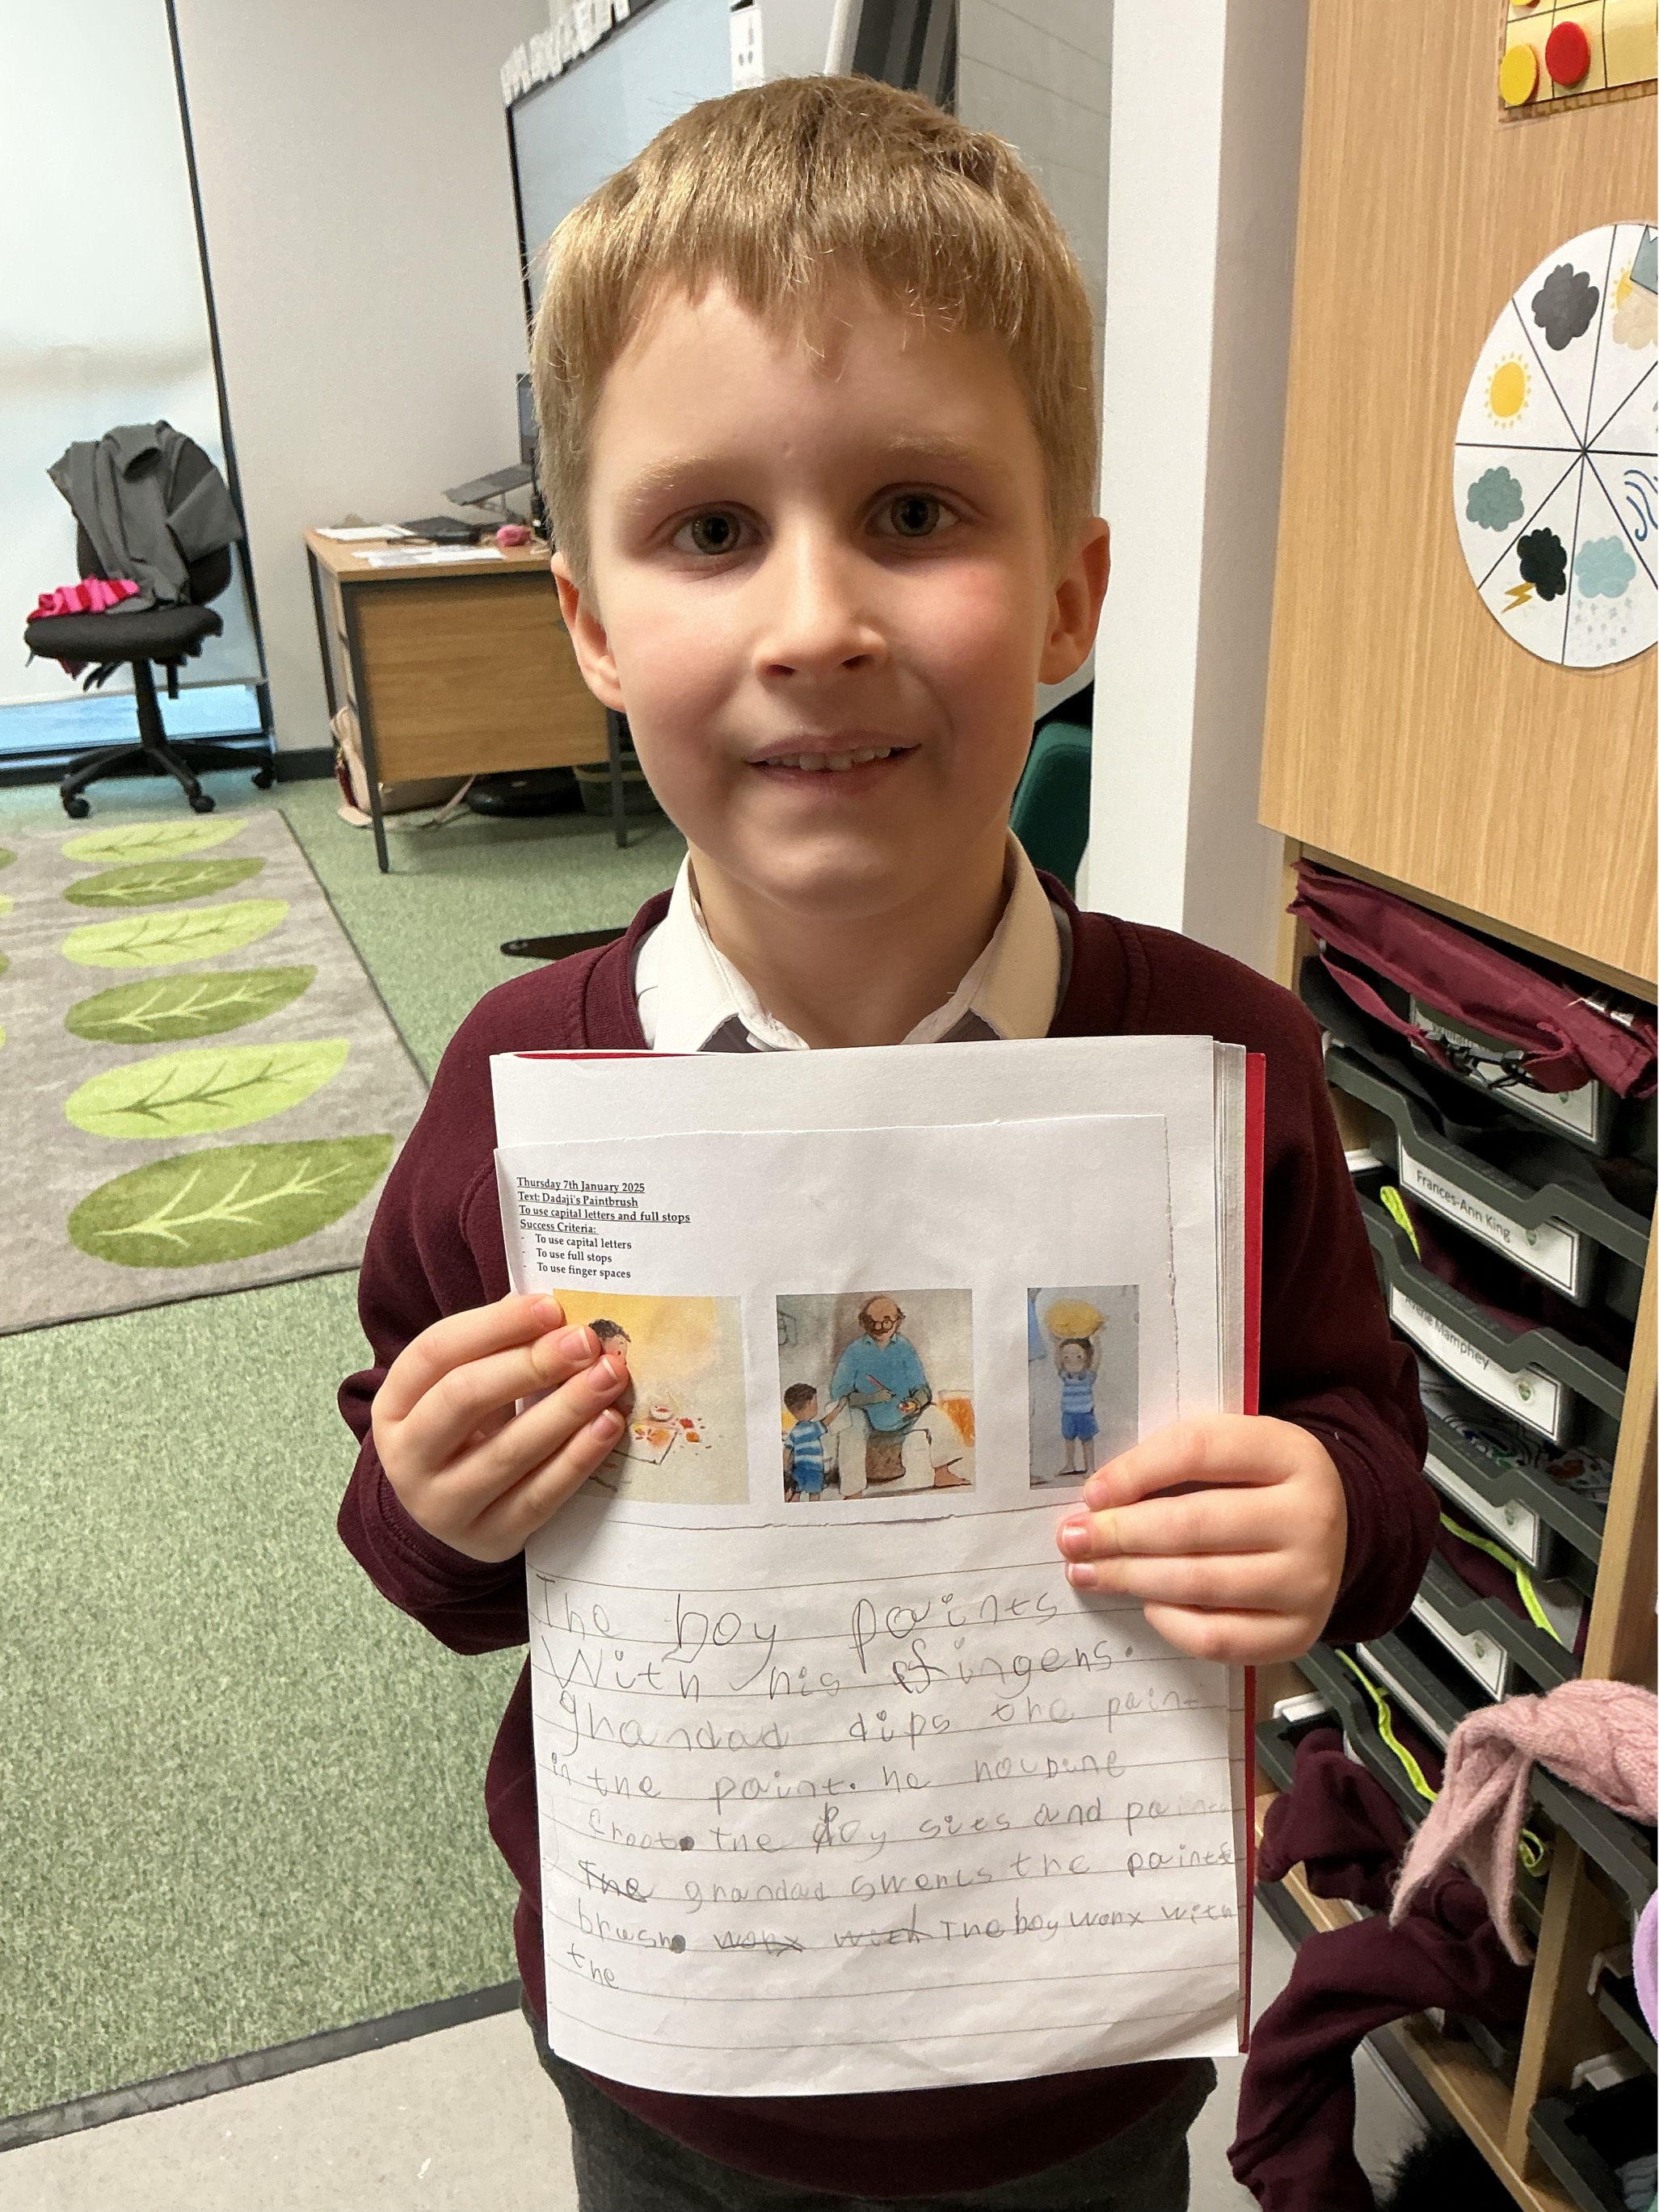 Thursday 7th January 2025
Text: Dadaji's Paintbrush
To use capital letters and full stops
Success Criteria:
- To use capital letters
- To use full stops
- To use finger spaces
The boy paints
With his fingers.
grandad dips the paint
in the paint. he
the boy sits and
The grandad the paint
brush. worx with The boy worx with
the
Frances-Ann King
Mamphey